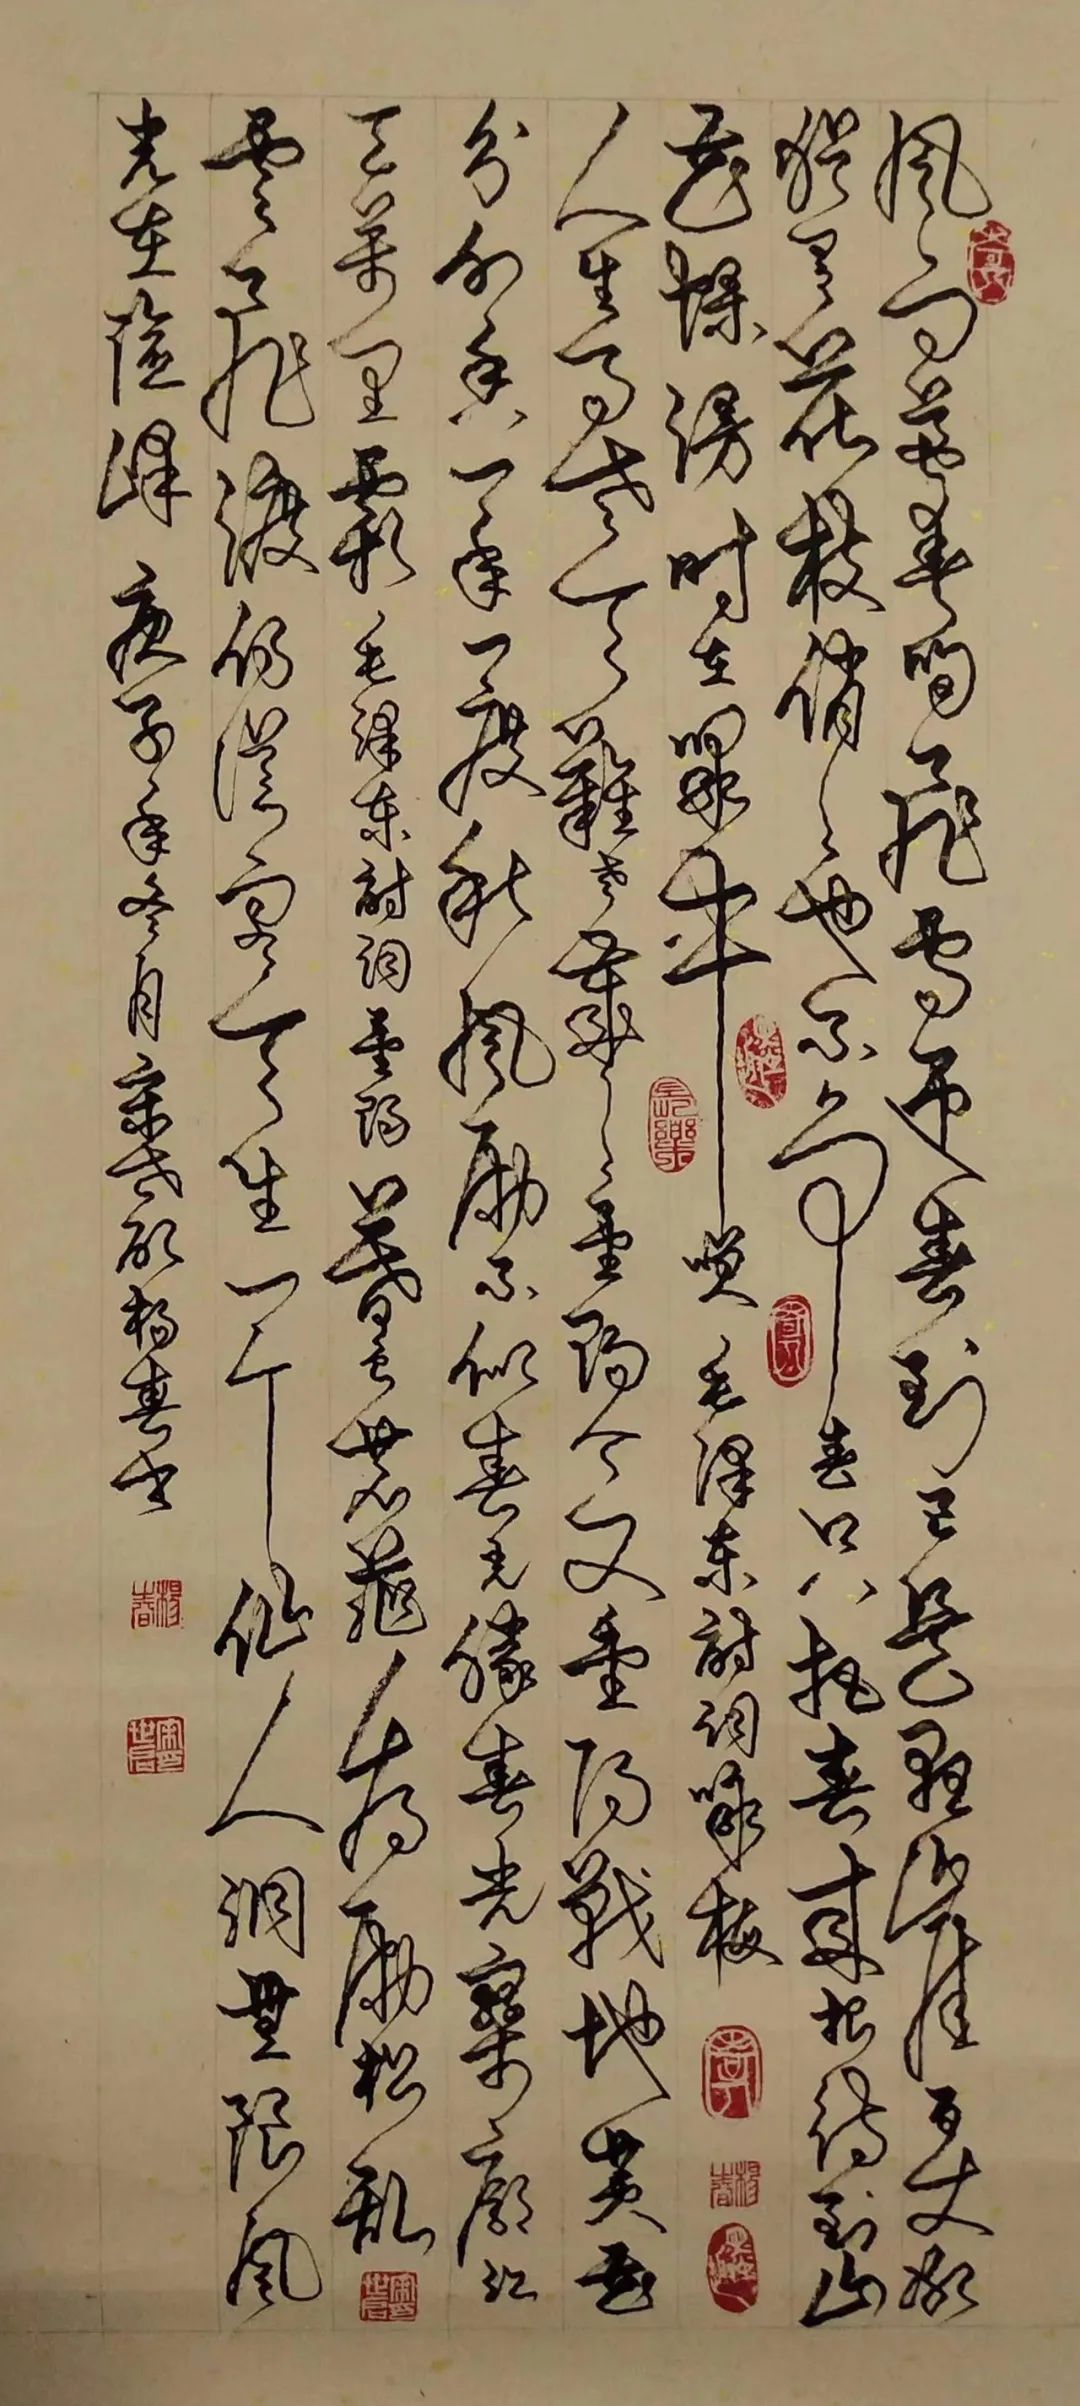 風雨送春歸飛雪迎春到已是懸崖百丈冰
猶有花枝俏々也不爭春只把春來報待到山
花爛漫時在叢中笑 毛澤東詩詞詠梅
人生易老天難老歲々重陽今又重陽戰地黃花
分外香一年一度秋風勁不似春光勝春光寥廓江
天萬里霜 毛澤東詩詞重陽 暮色蒼茫看勁松亂
雲飛渡仍從容天生一个仙人洞無限風
光在險峰 庚子年冬月 楊春書